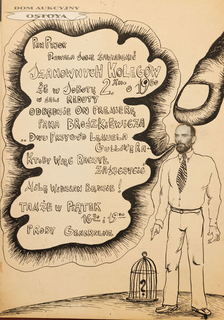 DOM AUKCYJNY
OSTOYA
PAN PREZES
POZWALA SOBIE ZAWIADOMIĆ
SZANOWNYCH KOLEGÓW
ŻE W SOBOTĘ 2 O 19
W SALI REDUTY
ODBĘDZIE SIĘ PREMIERA
PANA BROSZKIEWICZA
"DWU PRZYGÓD LEMUELA
GULLIWERA"
KTOBY WIĘC RACZYŁ
ZASZCZYCIĆ
MILE WIDZIAN BĘDZIE!
TAMŻE W PIĄTEK
16 I 19
PRÓBY GENERALNE